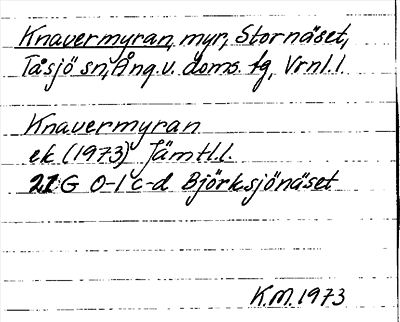 Knavermyran, myr, Stornäset,
Tåsjö sn, Ång.v. doms. tg, Vrnl.l.
Knavermyran
ek (1973) Jämtl.l.
21 G 0-1 c-d Björksjönäset
K.M. 1973